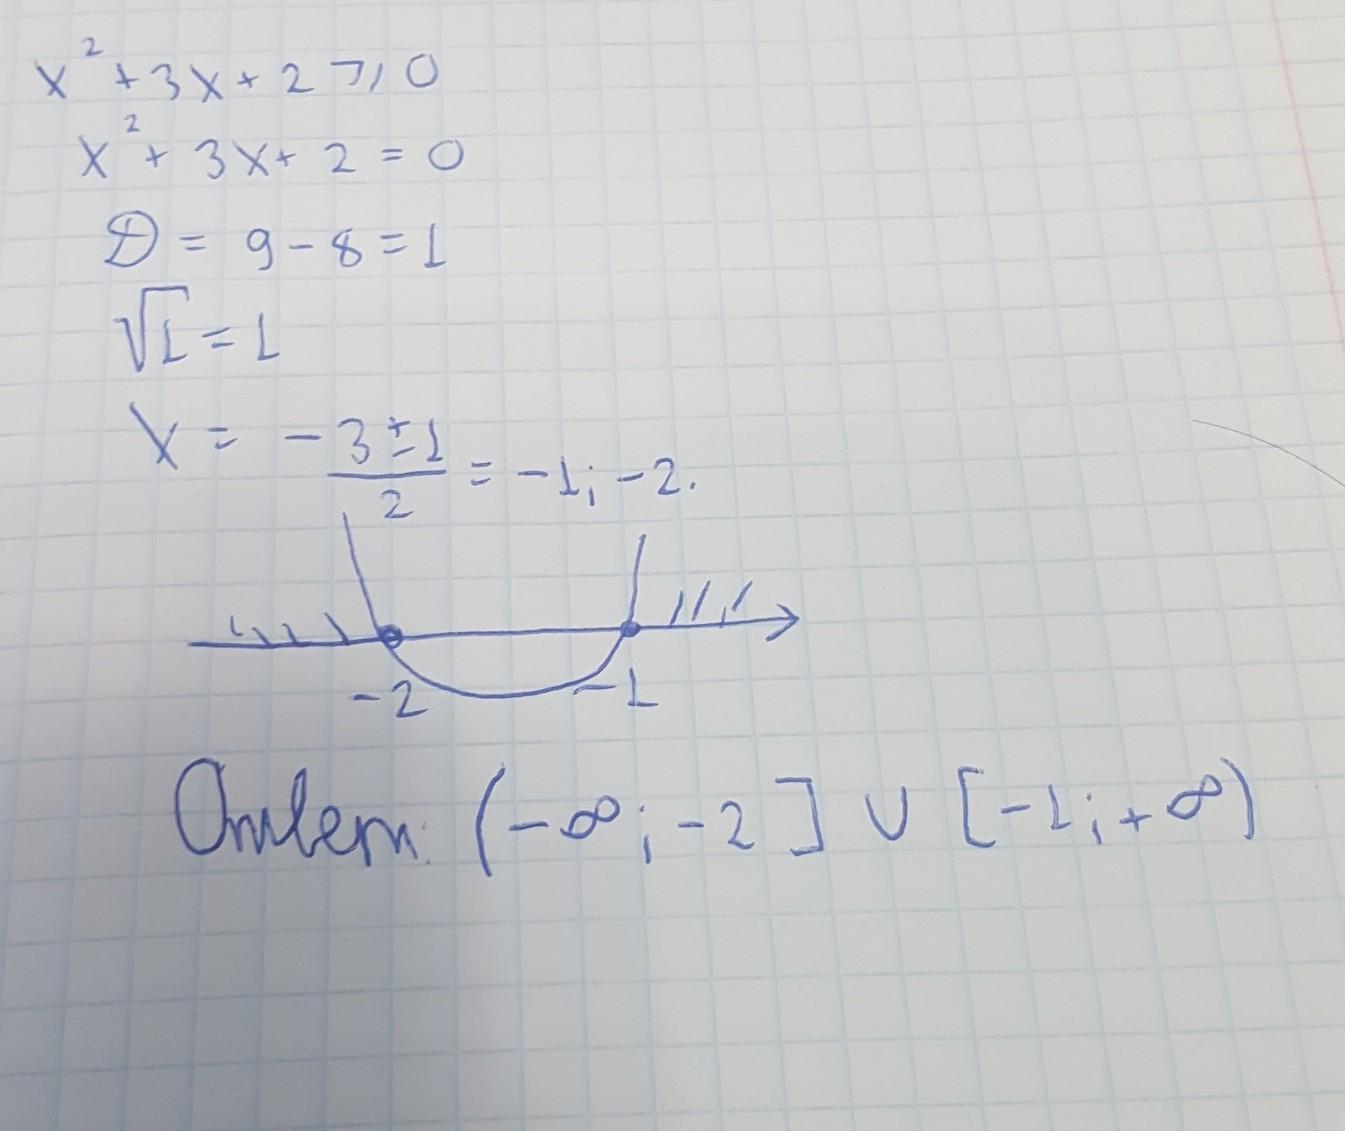 x² + 3x + 2 ⩾ 0
x² + 3x + 2 = 0
D = 9 - 8 = 1
√1 = 1
x = (-3 ± 1)/2 = -1; -2.
-2 -1
Ответ: (-∞; -2] ∪ [-1; +∞)